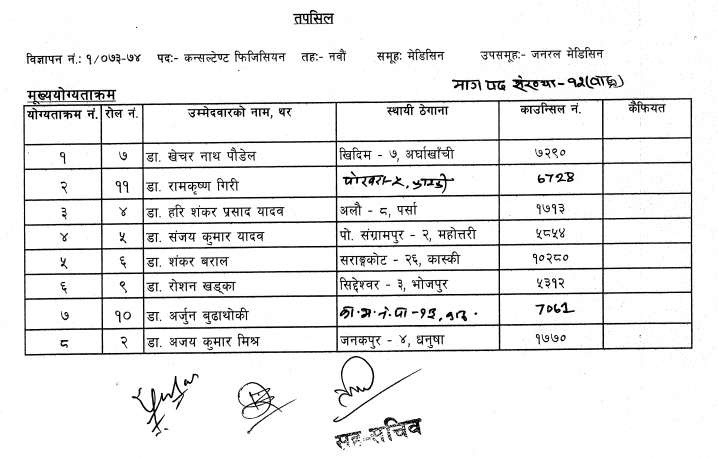 तपसिल
विज्ञापन नं.: १/०७३-७४ पदः- कन्सल्टेण्ट फिजिसियन तहः- नवौं समूहः मेडिसिन उपसमूहः- जनरल मेडिसिन
माग पद संख्या-१२(बाह्र)
मूख्ययोग्यताक्रम
योग्यताक्रम नं. रोल नं. उम्मेदवारको नाम, थर स्थायी ठेगाना काउन्सिल नं. कैफियत
१ ७ डा. खेचर नाथ पौडेल खिदिम - ७, अर्घाखाँची ७२९०
२ ११ डा. रामकृष्ण गिरी पोखरा-५, कास्की 6728
३ ४ डा. हरि शंकर प्रसाद यादव अलौ - ८, पर्सा १७१३
४ ५ डा. संजय कुमार यादव पो. संग्रामपुर - २, महोत्तरी ५८५४
५ ६ डा. शंकर बराल सराङ्कोट - २६, कास्की १०२८०
६ ९ डा. रोशन खड्का सिद्देश्वर - ३, भोजपुर ५३१२
७ १० डा. अर्जुन बुढाथोकी का.म.न.पा-१३, 7061
८ २ डा. अजय कुमार मिश्र जनकपुर - ४, धनुषा १७७०
सह-सचिव